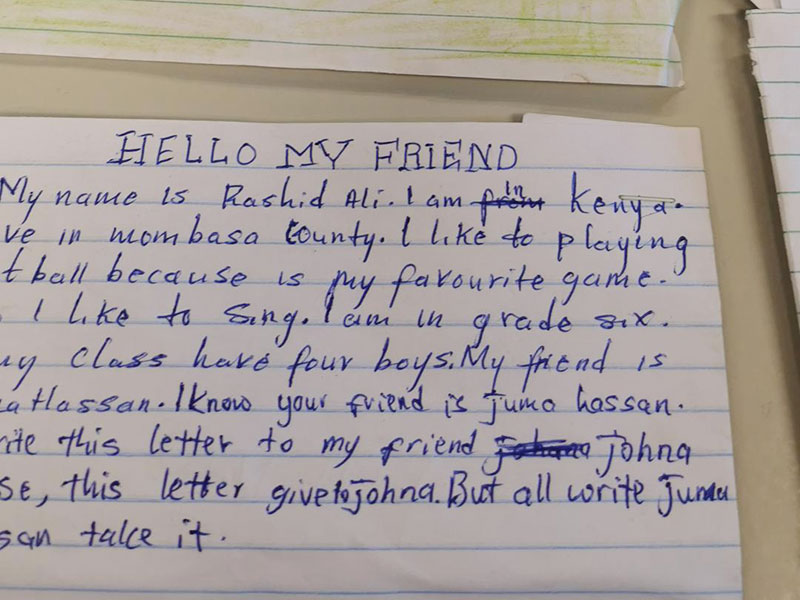 HELLO MY FRIEND
My name is Rashid Ali. I am in Kenya.
ve in mombasa County. I like to playing
t ball because is my favourite game.
I like to Sing. I am in grade six.
my Class have four boys. My friend is
a Hassan. I Know your friend is juma hassan.
rite this letter to my friend johna
se, this letter give to johna. But all write juma
san take it.